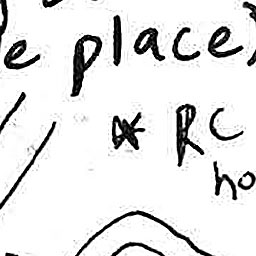 e place)
* RC
ho